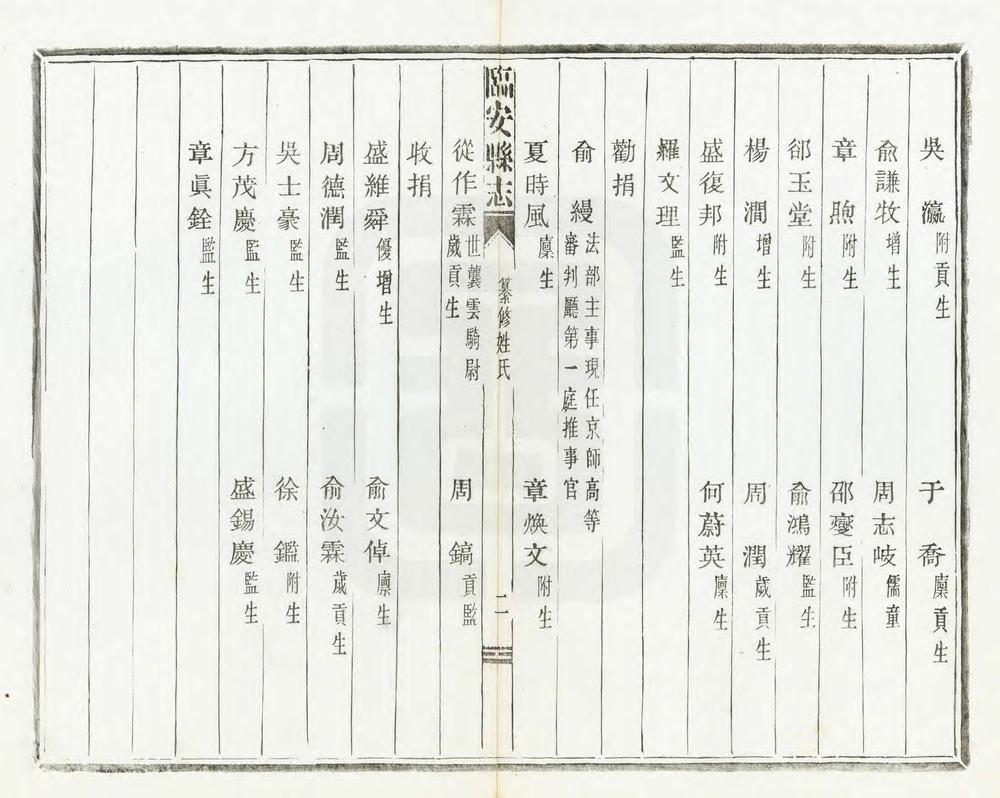 吳瀛附貢生 于喬廩貢生
俞謙牧增生 周志岐儒童
章煦附生 邵變臣附生
郤玉堂附生 俞鴻耀監生
楊澗增生 周潤歲貢生
盛復邦附生 何蔚英廩生
羅文理監生
勸捐
俞縵法部主事現任京師高等
審判廳第一庭推事官
夏時風廩生 章煥文附生
臨安縣志 纂修姓氏 二
從作霖世襲雲騎尉
歲貢生 周鎬貢監
收捐
盛維舜優增生 俞文倬廩生
周德潤監生 俞汝霖歲貢生
吳士豪監生 徐鑑附生
方茂慶監生 盛錫慶監生
章眞銓監生